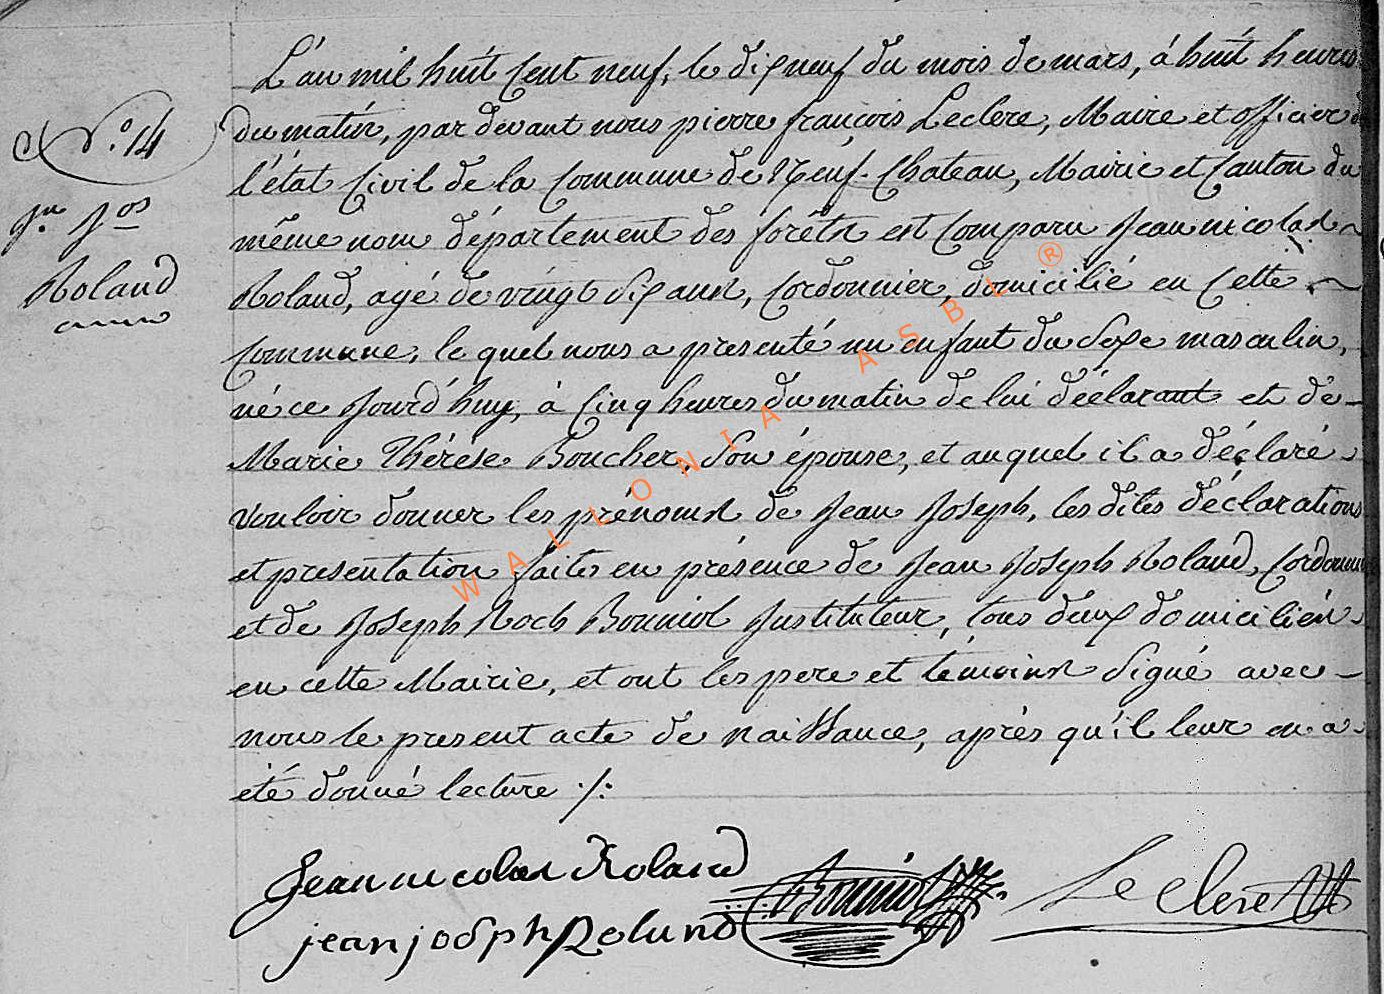 L'an mil huit Cent neuf, le dix neuf du mois de mars, à huit heures
N.º 14
du matin, par devant nous pierre françois Leclere, Maire et officier de
l'état Civil de la Commune de Neuf-Chateau, Mairie et Canton du
Jn. Jos
même nom département des forêts est Comparu Jean nicolas
Roland
Roland, agé de vingt six ans, Cordonnier, domicilié en Cette
Commune, le quel nous a presenté un enfant du Sexe masculin,
né ce Jourd'huy, à Cinq heures du matin de lui déclarant et de
Marie Thérèse Boucher, Son épouse, et auquel il a déclaré
vouloir donner les prénoms de Jean Joseph, les dites déclarations
et presentation faites en présence de Jean Joseph Roland, Cordonnier
et de Joseph Roch Bonniol Instituteur, tous deux domiciliés
en cette Mairie, et ont les pere et témoins Signé avec
nous le present acte de naissance, après qu'il leur en a
été donné lecture ./.
Jean nicolas Roland
jean joseph Roland
Bonniol
Leclere
WALLONIA ASBL ®